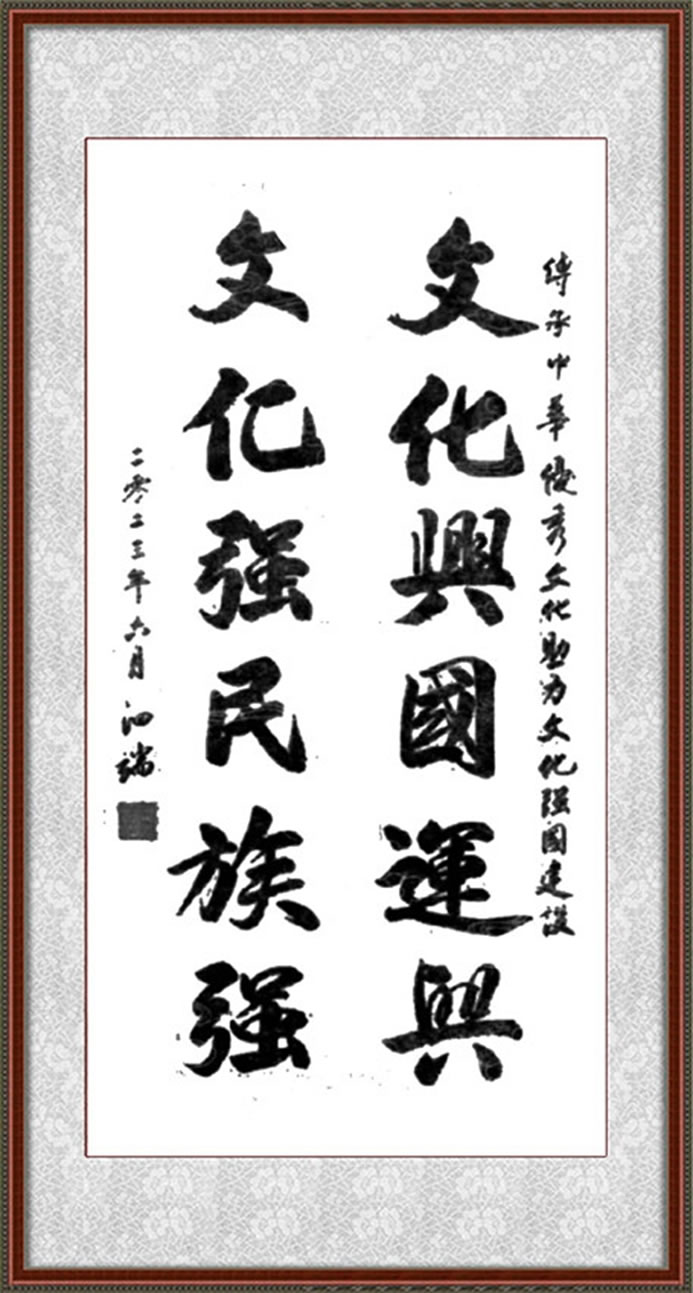 傳承中華優秀文化助力文化强國建設
文化興國運興
文化强民族强
二零二三年六月 泗